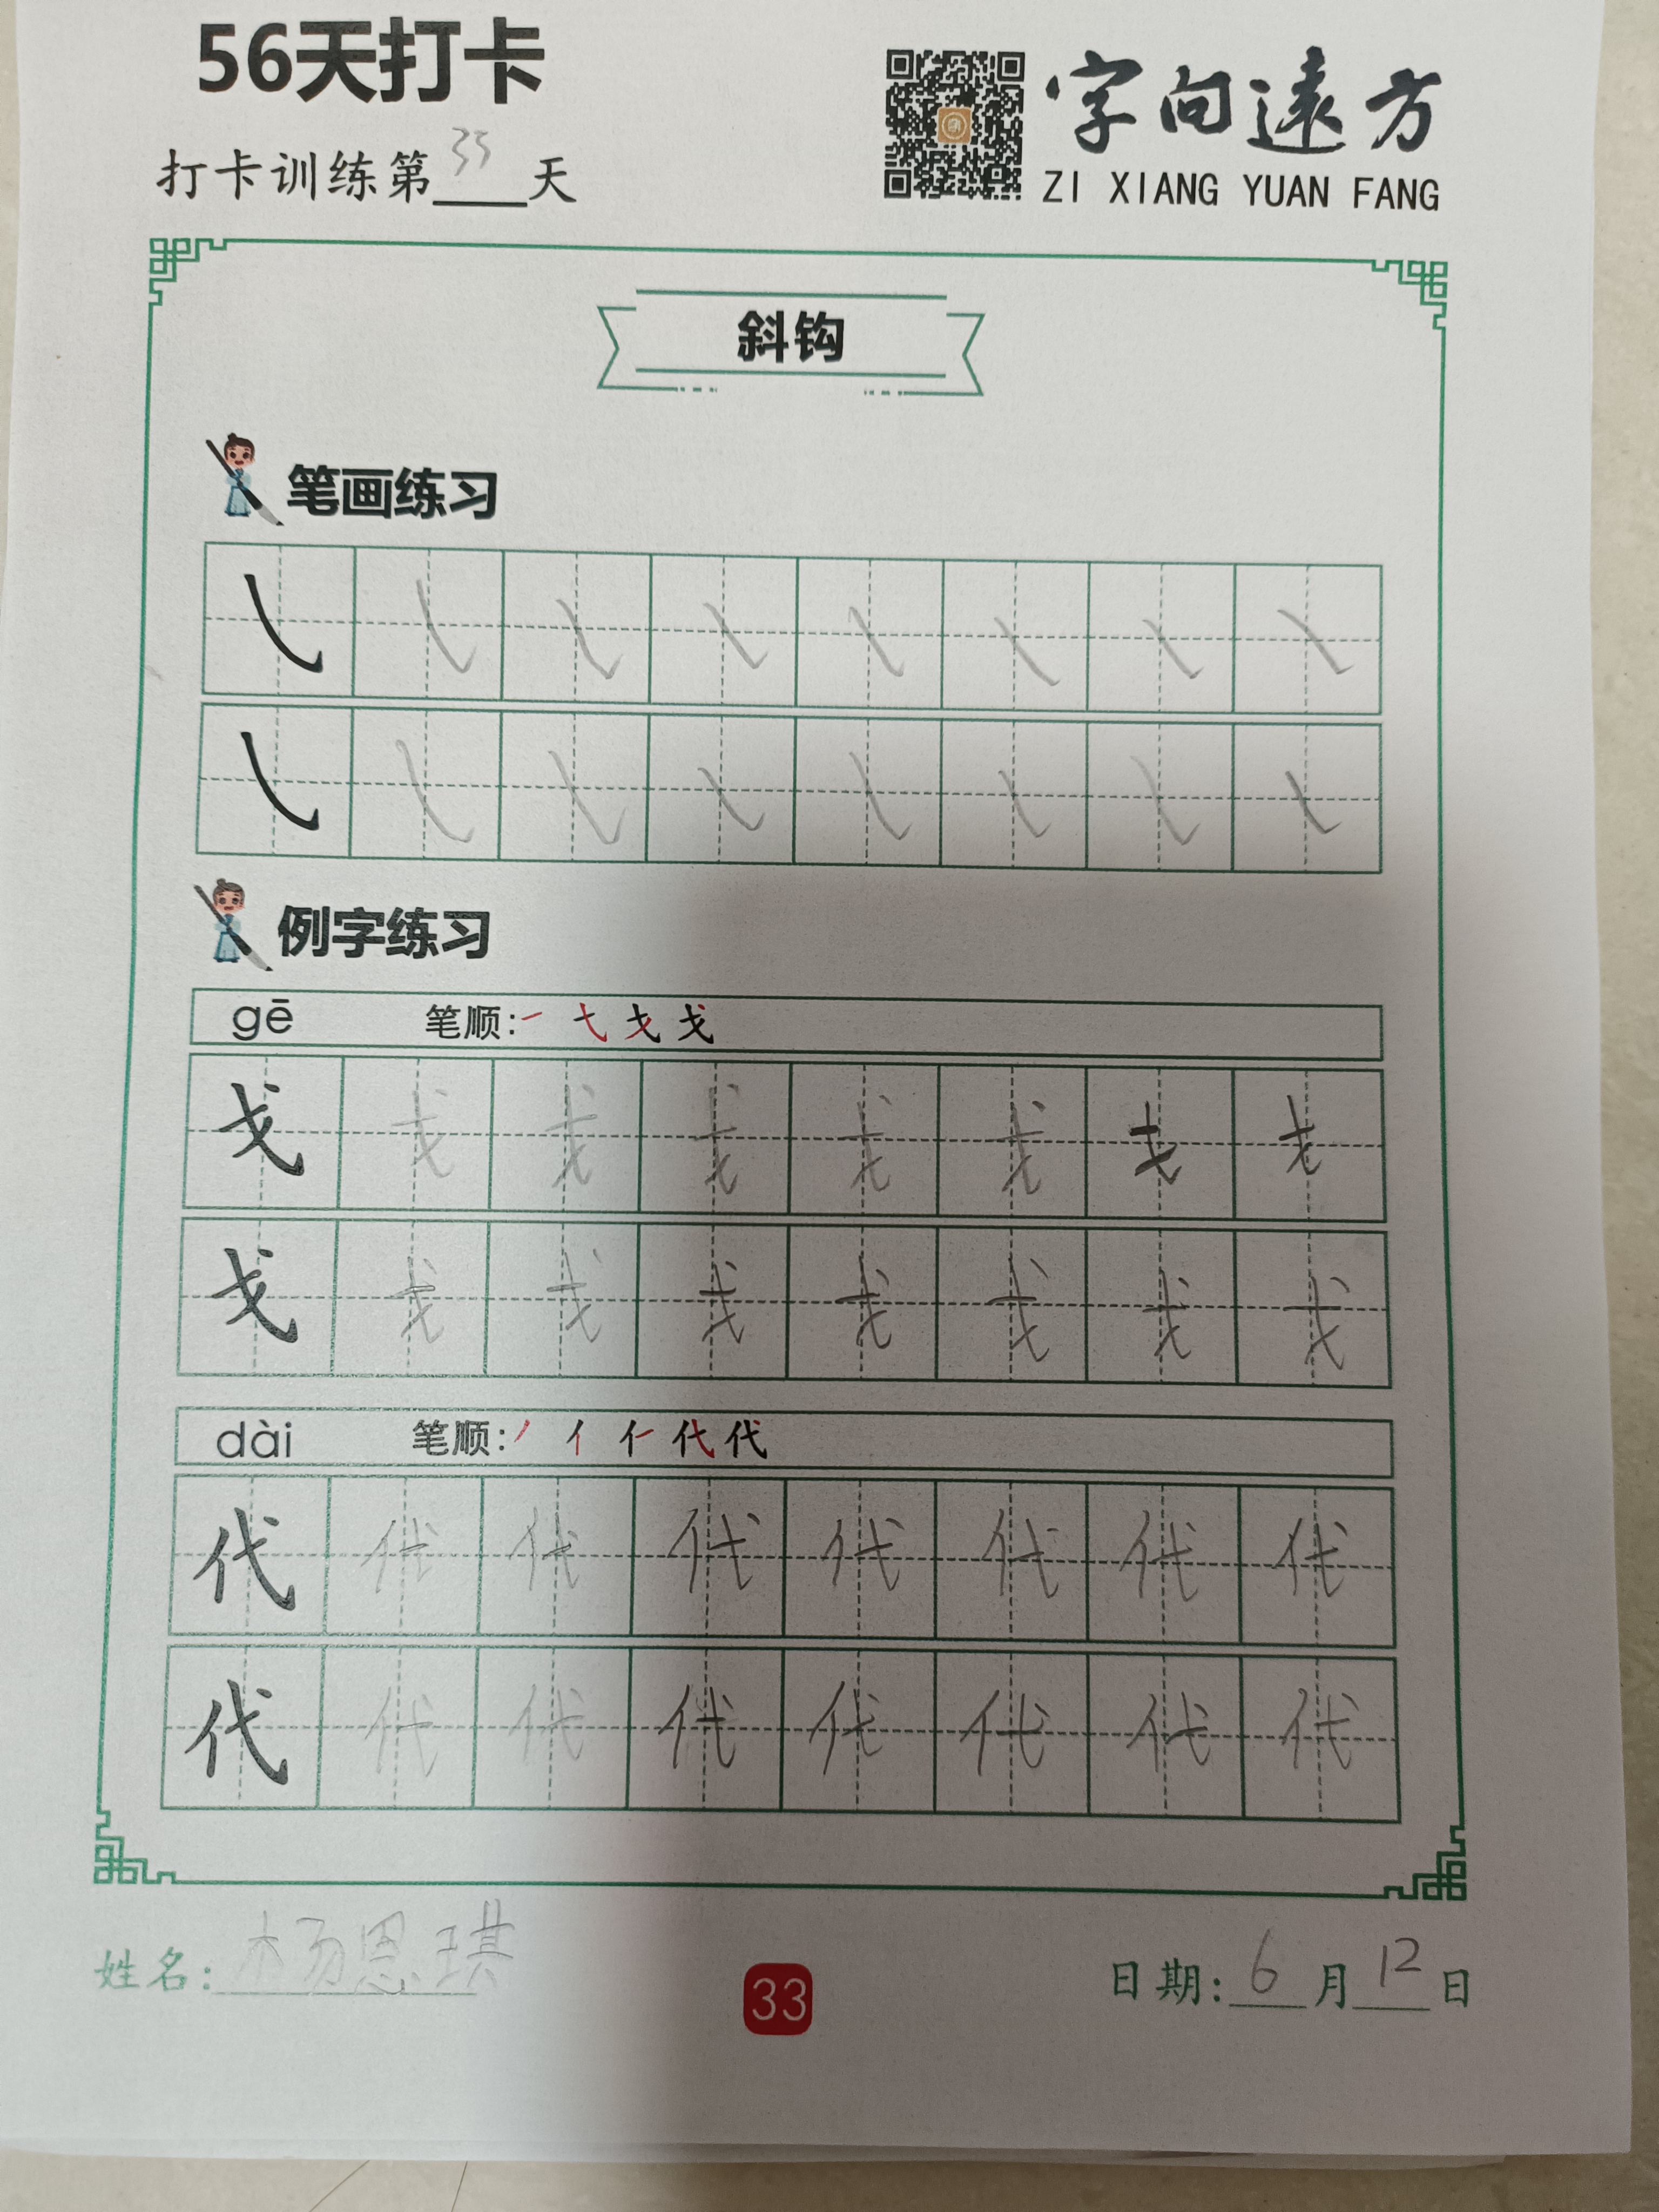 56天打卡
字向遠方
打卡训练第33天
ZI XIANG YUAN FANG
斜钩
笔画练习
㇂ ㇂ ㇂ ㇂ ㇂ ㇂ ㇂ ㇂
㇂ ㇂ ㇂ ㇂ ㇂ ㇂ ㇂ ㇂
例字练习
gē 笔顺: 一 七 戈 戈
戈 戈 戈 戈 戈 戈 戈 戈
戈 戈 戈 戈 戈 戈 戈 戈
dài 笔顺: 丿 亻 仁 代 代
代 代 代 代 代 代 代 代
代 代 代 代 代 代 代 代
姓名: 杨恩琪
33
日期: 6月12日